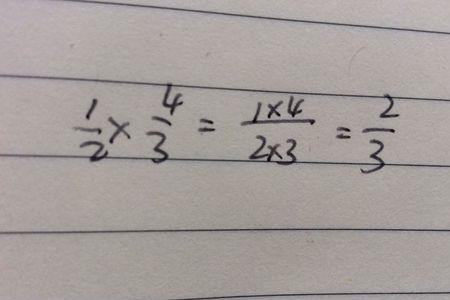 1/2 × 4/3 = 1×4/2×3 = 2/3